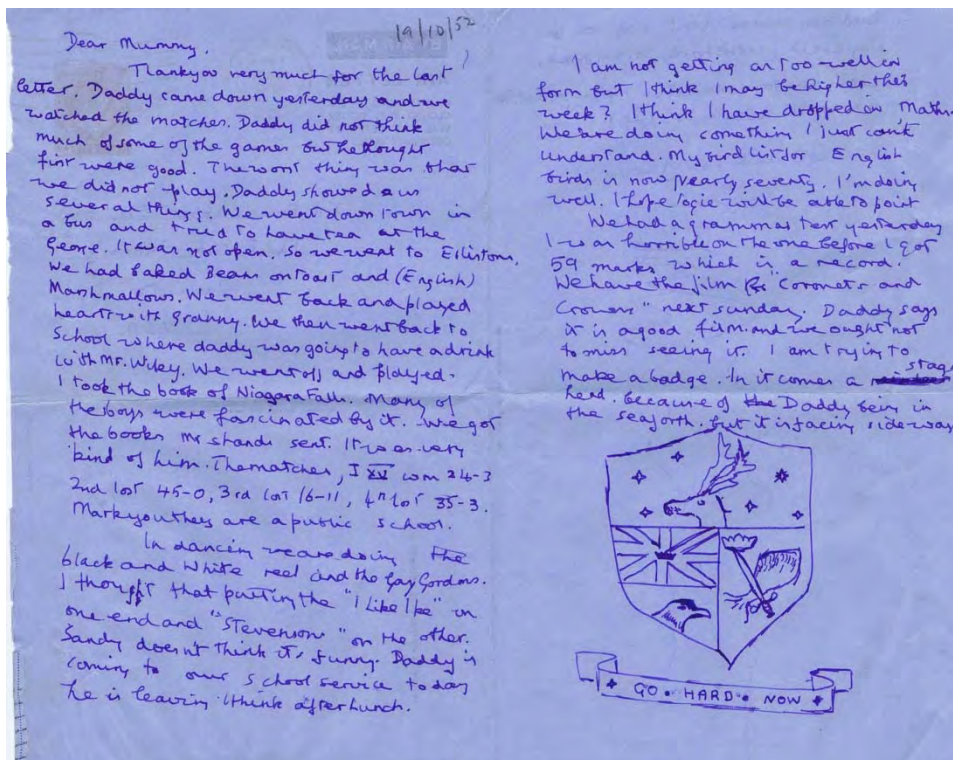 19/10/52
Dear Mummy,
Thankyou very much for the last
letter. Daddy came down yesterday and we
watched the matches. Daddy did not think
much of some of the games but he thought
first were good. The worst thing was that
we did not play. Daddy showed us
several things. We went down town in
a bus and tried to have tea at the
George. It was not open. So we went to
We had baked Beans on toast and (English)
Marshmallows. We went back and played
hearts with Granny. We then went back to
School where daddy was going to have a drink
with Mr. Wiley. We went off and played.
I took the book of Niagara Falls. Many of
the boys were fascinated by it. We got
the books Mr Shands sent. It was very
kind of him. The matches, I XV won 24-3
2nd lost 45-0, 3rd lost 16-11, 4th lost 35-3.
Mark you they are a public school.
In dancing we are doing the
black and white reel and the Gay Gordons.
I thought that putting the "I like Ike" on
one end and "Stevenson" on the other.
Sandy doesn't think it's funny. Daddy is
coming to our school service today
he is leaving I think after lunch.
I am not getting on too well in
form but I think I may be higher this
week? I think I have dropped in Maths.
We are doing something I just can't
understand. My bird list for English
birds is now nearly seventy. I'm doing
well. I hope will be able to point
We had a grammar test yesterday
I was horrible on the one before I got
59 marks which is a record.
We have the film Coronets and
Crowns" next sunday. Daddy says
it is a good film. and we ought not
to miss seeing it. I am trying to
make a badge. In it comes a stags
head. Because of the Daddy being in
the seaforth. but it is facing sideways
GO • HARD • NOW